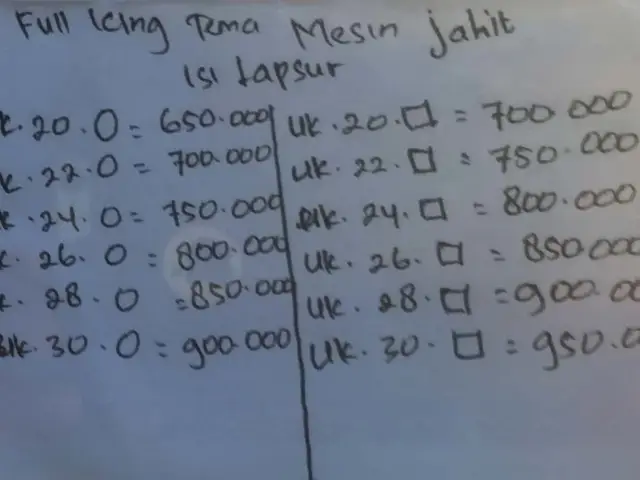 Full Icing Tema Mesin jahit
isi lapsur
k. 20. O = 650.000
k. 22. O = 700.000
k. 24. O = 750.000
k. 26. O = 800.000
k. 28. O = 850.000
uk. 30. O = 900.000
uk. 20. □ = 700 000
uk. 22. □ = 750.000
uk. 24. □ = 800.000
uk. 26. □ = 850 000
uk. 28. □ = 900.00
uk. 30. □ = 950.0